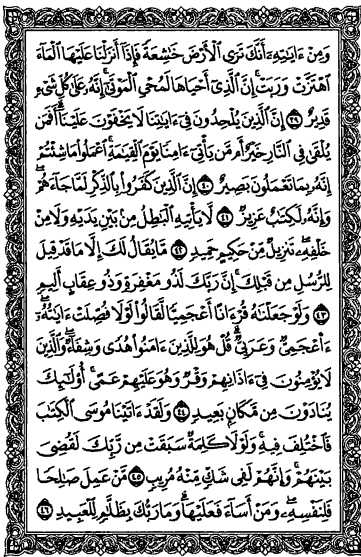 وَمِنْ ءَايَٰتِهِۦٓ أَنَّكَ تَرَى ٱلْأَرْضَ خَٰشِعَةً فَإِذَآ أَنزَلْنَا عَلَيْهَا ٱلْمَآءَ
ٱهْتَزَّتْ وَرَبَتْ ۚ إِنَّ ٱلَّذِىٓ أَحْيَاهَا لَمُحْىِ ٱلْمَوْتَىٰٓ ۚ إِنَّهُۥ عَلَىٰ كُلِّ شَىْءٍ
قَدِيرٌ ﴿٣٩﴾ إِنَّ ٱلَّذِينَ يُلْحِدُونَ فِىٓ ءَايَٰتِنَا لَا يَخْفَوْنَ عَلَيْنَآ ۗ أَفَمَن
يُلْقَىٰ فِى ٱلنَّارِ خَيْرٌ أَم مَّن يَأْتِىٓ ءَامِنًا يَوْمَ ٱلْقِيَٰمَةِ ۚ ٱعْمَلُوا۟ مَا شِئْتُمْ ۖ
إِنَّهُۥ بِمَا تَعْمَلُونَ بَصِيرٌ ﴿٤٠﴾ إِنَّ ٱلَّذِينَ كَفَرُوا۟ بِٱلذِّكْرِ لَمَّا جَآءَهُمْ ۖ
وَإِنَّهُۥ لَكِتَٰبٌ عَزِيزٌ ﴿٤١﴾ لَّا يَأْتِيهِ ٱلْبَٰطِلُ مِنۢ بَيْنِ يَدَيْهِ وَلَا مِنْ
خَلْفِهِۦ ۖ تَنزِيلٌ مِّنْ حَكِيمٍ حَمِيدٍ ﴿٤٢﴾ مَّا يُقَالُ لَكَ إِلَّا مَا قَدْ قِيلَ
لِلرُّسُلِ مِن قَبْلِكَ ۚ إِنَّ رَبَّكَ لَذُو مَغْفِرَةٍ وَذُو عِقَابٍ أَلِيمٍ
﴿٤٣﴾ وَلَوْ جَعَلْنَٰهُ قُرْءَانًا أَعْجَمِيًّا لَّقَالُوا۟ لَوْلَا فُصِّلَتْ ءَايَٰتُهُۥٓ ۖ
ءَا۬عْجَمِىٌّ وَعَرَبِىٌّ ۗ قُلْ هُوَ لِلَّذِينَ ءَامَنُوا۟ هُدًى وَشِفَآءٌ ۖ وَٱلَّذِينَ
لَا يُؤْمِنُونَ فِىٓ ءَاذَانِهِمْ وَقْرٌ وَهُوَ عَلَيْهِمْ عَمًى ۚ أُو۟لَٰٓئِكَ
يُنَادَوْنَ مِن مَّكَانٍۭ بَعِيدٍ ﴿٤٤﴾ وَلَقَدْ ءَاتَيْنَا مُوسَى ٱلْكِتَٰبَ
فَٱخْتُلِفَ فِيهِ ۗ وَلَوْلَا كَلِمَةٌ سَبَقَتْ مِن رَّبِّكَ لَقُضِىَ
بَيْنَهُمْ ۚ وَإِنَّهُمْ لَفِى شَكٍّ مِّنْهُ مُرِيبٍ ﴿٤٥﴾ مَّنْ عَمِلَ صَٰلِحًا
فَلِنَفْسِهِۦ ۖ وَمَنْ أَسَآءَ فَعَلَيْهَا ۗ وَمَا رَبُّكَ بِظَلَّٰمٍ لِّلْعَبِيدِ ﴿٤٦﴾